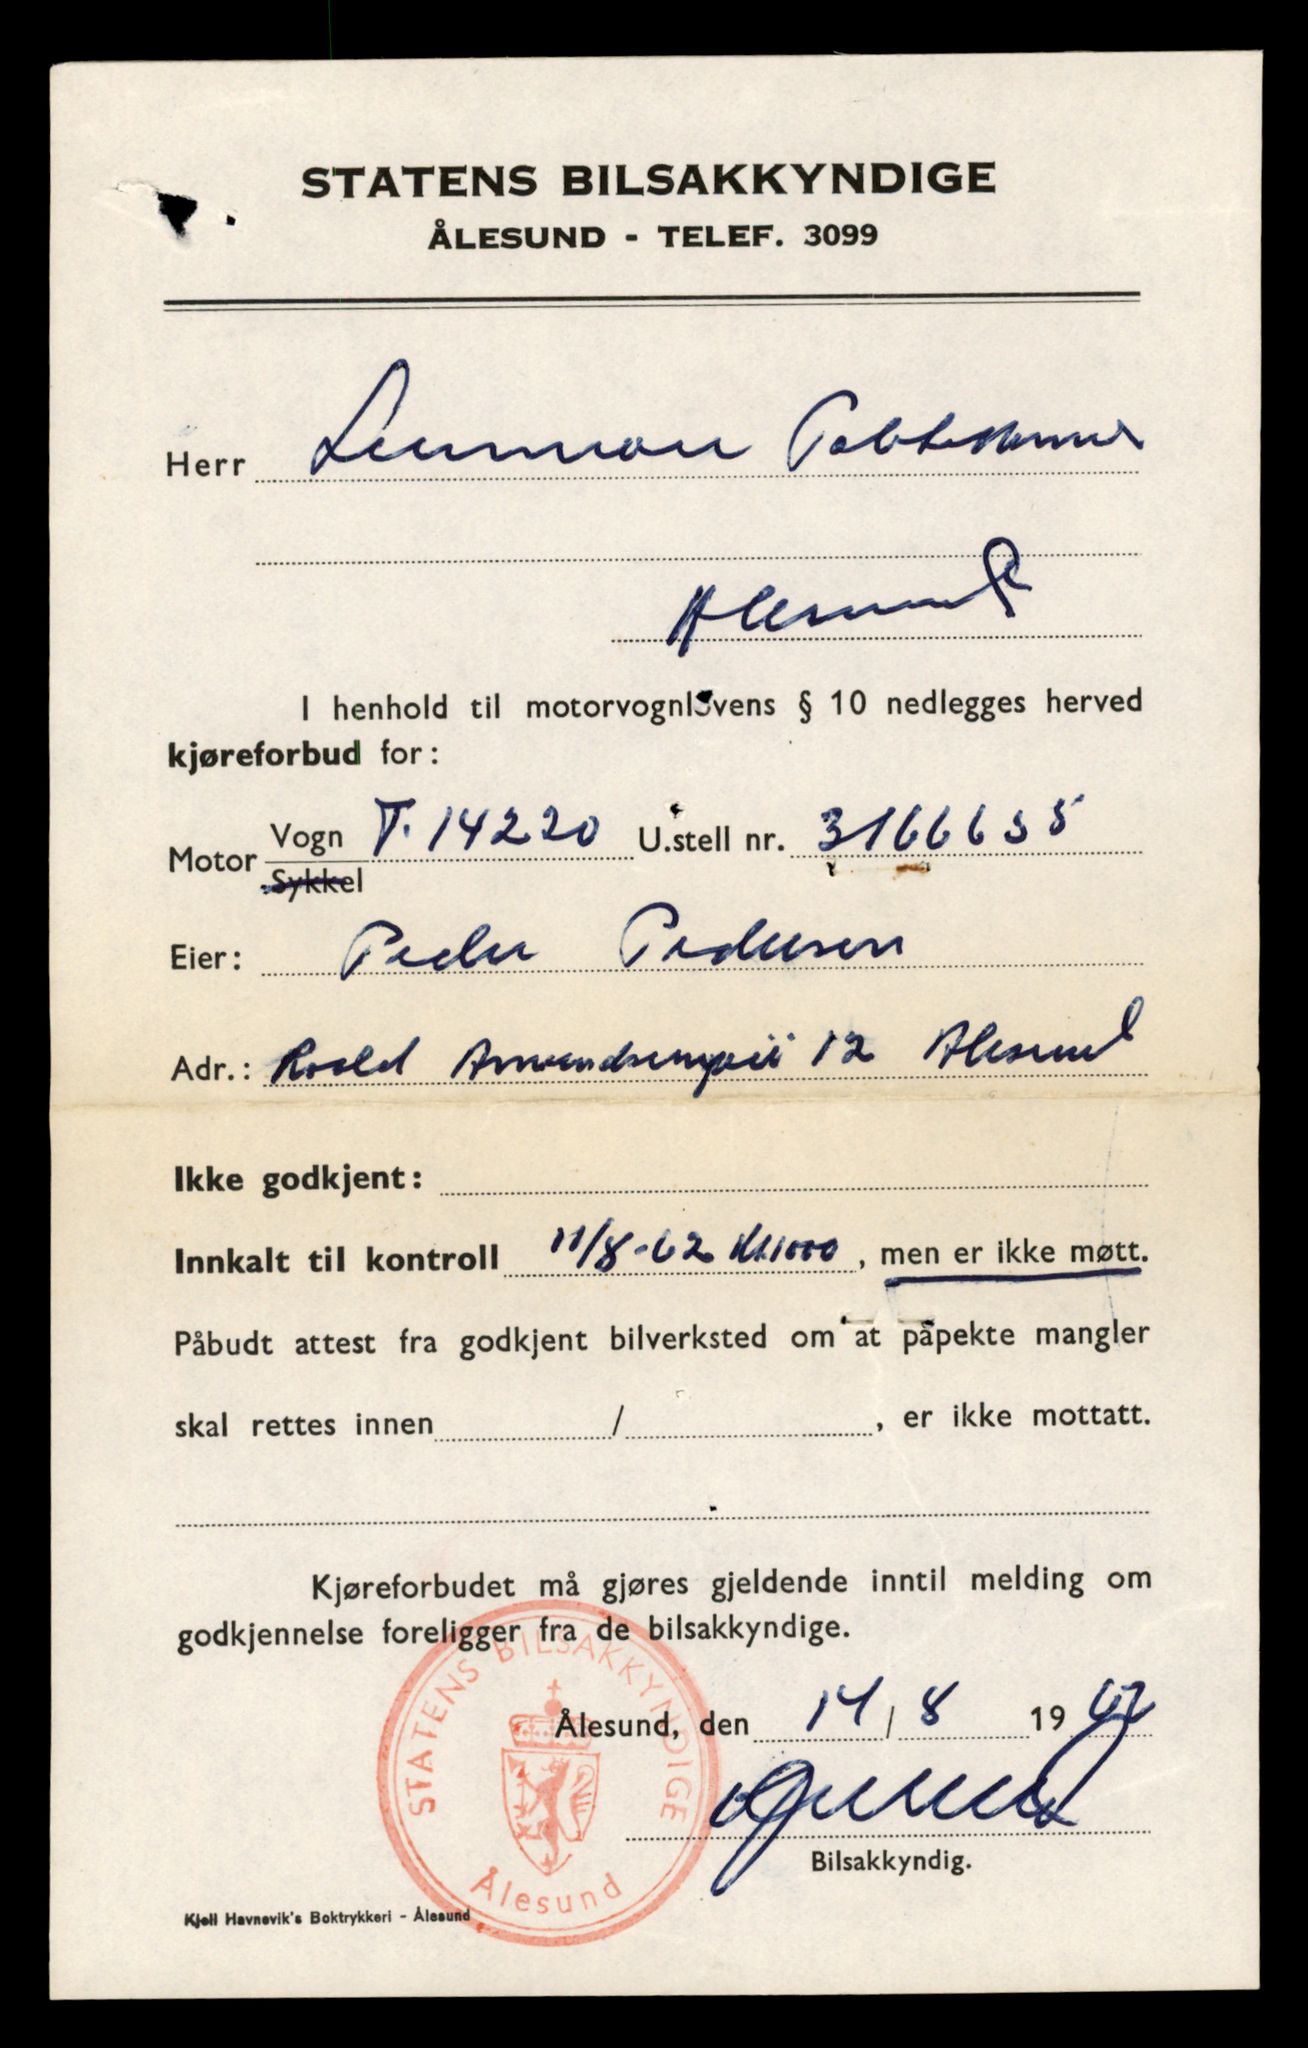 STATENS BILSAKKYNDIGE
ÅLESUND - TELEF. 3099
Herr
Ålesund
I henhold til motorvognlovens § 10 nedlegges herved
kjøreforbud for:
Motor Vogn T. 14220 U.stell nr. 3166655
Sykkel
Eier: Peder Pedersen
Adr.: Roald Amundsensvei 12 Ålesund
Ikke godkjent:
Innkalt til kontroll 11/8-62 kl. 1000, men er ikke møtt.
Påbudt attest fra godkjent bilverksted om at påpekte mangler
skal rettes innen / , er ikke mottatt.
Kjøreforbudet må gjøres gjeldende inntil melding om
godkjennelse foreligger fra de bilsakkyndige.
STATENS BILSAKKYNDIGE
Ålesund, den 14 / 8 19 62
Bilsakkyndig.
Ålesund
Kjell Havnevik's Boktrykkeri - Ålesund